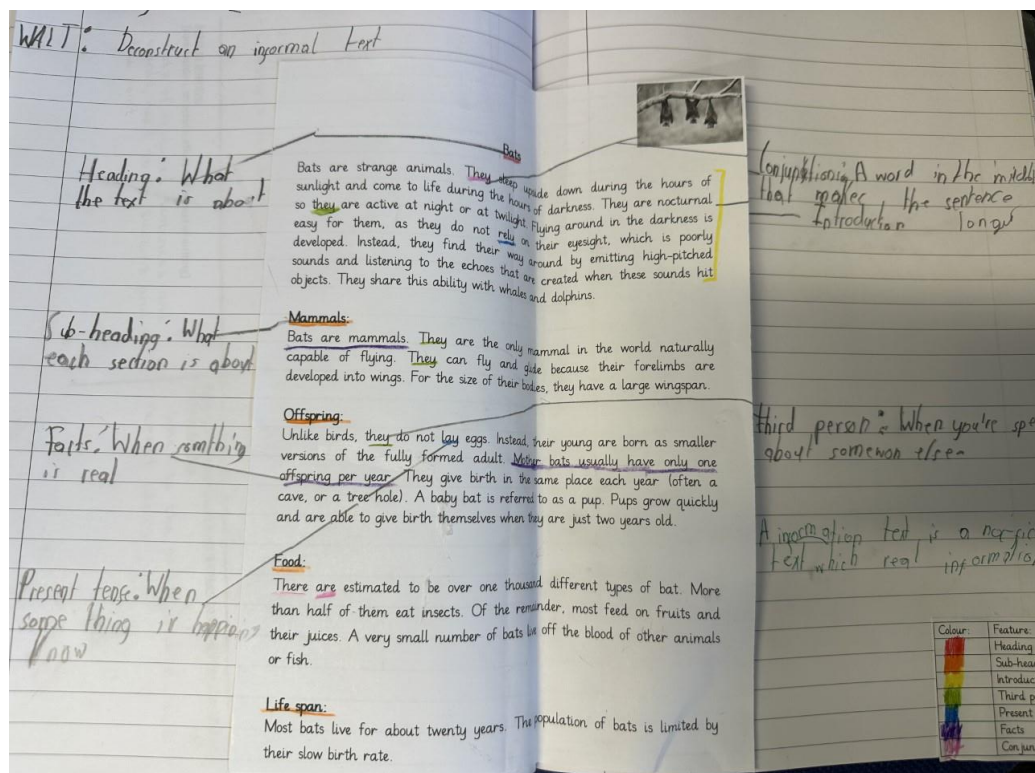 WALT: Deconstruct an informal text
Heading: What
the text is about
Sub-heading: What
each section is about
Facts: When somthing
is real
Present tense: When
some thing is happening
now
Bats
Bats are strange animals. They sleep upside down during the hours of
sunlight and come to life during the hours of darkness. They are nocturnal
so they are active at night or at twilight. Flying around in the darkness is
easy for them, as they do not rely on their eyesight, which is poorly
developed. Instead, they find their way around by emitting high-pitched
sounds and listening to the echoes that are created when these sounds hit
objects. They share this ability with whales and dolphins.
Mammals:
Bats are mammals. They are the only mammal in the world naturally
capable of flying. They can fly and glide because their forelimbs are
developed into wings. For the size of their bodies, they have a large wingspan.
Offspring:
Unlike birds, they do not lay eggs. Instead, their young are born as smaller
versions of the fully formed adult. Mother bats usually have only one
offspring per year. They give birth in the same place each year (often a
cave, or a tree hole). A baby bat is referred to as a pup. Pups grow quickly
and are able to give birth themselves when they are just two years old.
Food:
There are estimated to be over one thousand different types of bat. More
than half of them eat insects. Of the remainder, most feed on fruits and
their juices. A very small number of bats live off the blood of other animals
or fish.
Life span:
Most bats live for about twenty years. The population of bats is limited by
their slow birth rate.
A word in the middle
that makes the sentence
longer
Introduction
third person: When you're spe
about somewon else
A information text is a non-fic
text which real informatio
Colour: Feature:
Heading
Sub-hea
Introduc
Third p
Present
Facts
Conjun